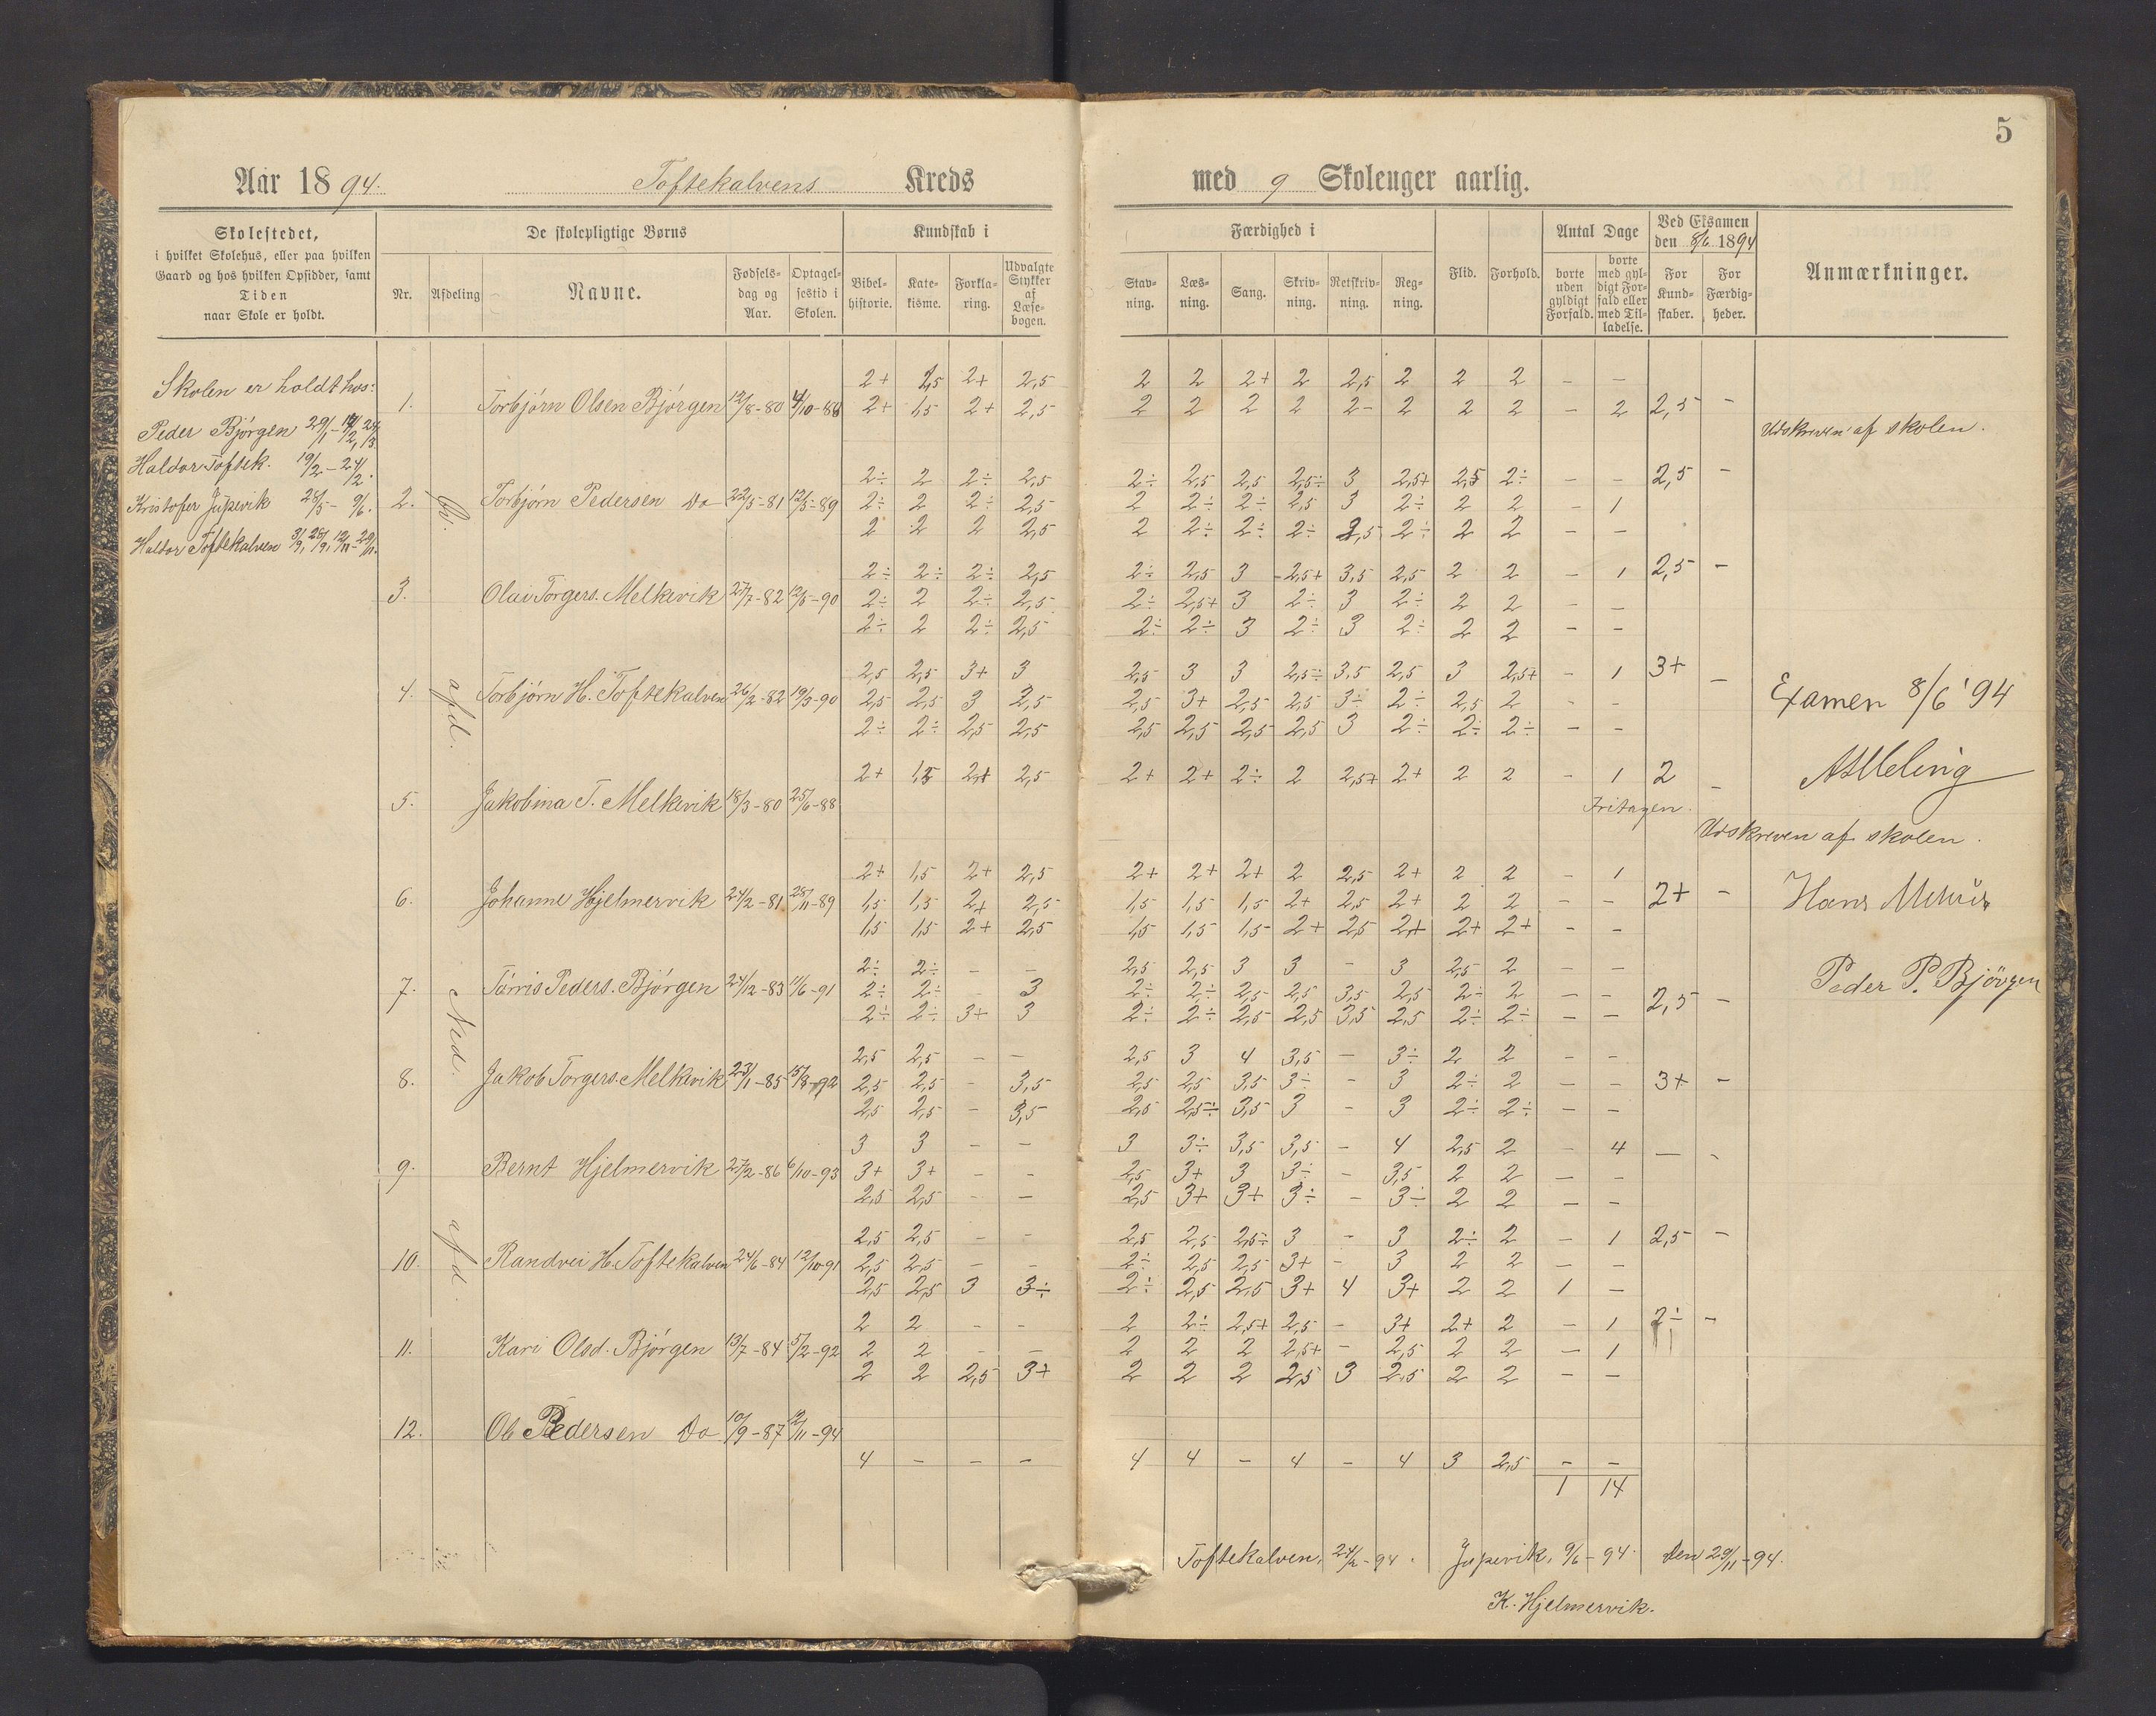 5
Aar 1894. Toftekalvens Kreds med 9 Skoleuger aarlig.
Skolestedet,
i hvilket Skolehus, eller paa hvilken
Gaard og hos hvilken Opsidder, samt
Tiden
naar Skole er holdt.
De skolepligtige Børns
Nr. Afdeling Navne. Fødsels-dag og Aar. Optagel-sestid i Skolen.
Kundskab i
Bibel-historie. Kate-kisme. Forkla-ring. Udvalgte Stykker af Læse-bogen.
Færdighed i
Stav-ning. Læs-ning. Sang. Skriv-ning. Retskriv-ning. Reg-ning.
Flid. Forhold.
Antal Dage
borte uden gyldigt Forfald. borte med gyl-digt For-fald eller med Til-ladelse.
Ved Eksamen
den 8/6 1894
For Kund-skaber. For Færdig-heder.
Anmærkninger.
Skolen er holdt hos:
Peder Bjørgen
Haldor Toftek. 19/2 – 24/2.
Kristofer Jupevik 28/5 – 9/6.
Haldor Toftekalven
Øv. afd.
Ned. afd.
2+ 1,5 2+ 2,5 2 2 2+ 2 2,5 2 2 2 – –
1. Torbjørn Olsen Bjørgen 12/8-80 4/10-88 2+ 1,5 2+ 2,5 2 2 2 2 2- 2 2 2 – 2 2,5 –
Udskreven af skolen.
2÷ 2 2÷ 2,5 2÷ 2,5 2,5 2,5÷ 3 2,5+ 2,5 2÷ – – 2,5 –
2. Torbjørn Pedersen Do 22/5-81 12/5-89 2÷ 2 2÷ 2,5 2 2÷ 2÷ 2,5 3 2÷ 2 2 – 1
2 2 2 2,5 2 2÷ 2÷ 2÷ 2,5 2÷ 2 2 – –
2÷ 2÷ 2÷ 2,5 2÷ 2,5 3 2,5+ 3,5 2,5 2 2 – 1 2,5 –
3. Olai Torgers. Melkevik 27/7-82 12/5-90 2÷ 2 2÷ 2,5 2÷ 2,5+ 3 2÷ 3 2÷ 2 2 – –
2÷ 2 2÷ 2,5 2÷ 2÷ 3 2÷ 3 2÷ 2 2 – –
2,5 2,5 3+ 3 2,5 3 3 2,5÷ 3,5 2,5 3 2,5+ – 1 3+ –
4. Torbjørn H. Toftekalven 26/2-82 19/5-90 2,5 2,5 3 2,5 2,5 3+ 2,5 2,5 3÷ 2÷ 2,5 2 – –
Examen 8/6 '94
2÷ 2÷ 2,5 2,5 2,5 2,5 2,5 2,5 3 2÷ 2÷ 2÷ – –
2+ 1,5 2+ 2,5 2+ 2+ 2÷ 2 2,5+ 2+ 2 2 – 1 2 –
5. Jakobina T. Melkevik 18/3-80 25/6-88
Fritagen.
Udskreven af skolen.
2+ 1,5 2+ 2,5 2+ 2+ 2+ 2 2,5 2+ 2 2 – 1
6. Johanne Hjelmervik 24/2-81 28/11-89 1,5 1,5 2+ 2,5 1,5 1,5 1,5 2+ 2,5 2+ 2 2 – – 2+ –
Hans
1,5 1,5 2+ 2,5 1,5 1,5 1,5 2+ 2,5 2+ 2+ 2+ – –
2÷ 2÷ – – 2,5 2,5 3 3 – 3 2,5 2 – –
7. Tørris Peders. Bjørgen 24/12-83 11/6-91 2÷ 2÷ – 3 2÷ 2÷ 2,5 2,5 3,5 2,5 2÷ 2 – – 2,5 –
Peder P. Bjövgen
2÷ 2÷ 3+ 3 2÷ 2÷ 2,5 2,5 3,5 2,5 2÷ 2÷ – –
2,5 2,5 – – 2,5 3 4 3,5 – 3÷ 2 2 – –
8. Jakob Torgers. Melkevik 23/1-85 15/8-92 2,5 2,5 – 3,5 2,5 2,5 3,5 3÷ – 3 2÷ 2 – – 3+ –
2,5 2,5 – 3,5 2,5 2,5÷ 3,5 3 – 3 2÷ 2÷ – –
3 3 – – 3 3÷ 3,5 3,5 – 4 2,5 2 – 4 – –
9. Bernt Hjelmervik 27/2-86 6/10-93 3+ 3+ – – 2,5 3+ 3 3÷ – 3,5 2 2 – –
2,5 2,5 – – 2,5 3+ 3+ 3÷ – 3÷ 2 2 – –
2,5 2,5 – – 2,5 2,5 2,5÷ 3 – 3 2÷ 2 – 1 2,5 –
10. Randvei H. Toftekalven 24/6-84 12/10-91 2,5 2,5 – – 2÷ 2,5 2,5 3+ – 3 2 2 – –
2,5 2,5 3 3÷ 2÷ 2,5 2,5 3+ 4 3+ 2 2 1 –
2 2 – – 2 2÷ 2,5+ 2,5 – 3+ 2+ 2 – 1 2÷ –
11. Kari Olsd. Bjørgen 13/7-84 5/2-92 2 2 – – 2 2 2 2,5+ – 2,5 2 2 – 1
2 2 2,5 3+ 2 2 2 2,5 3 2,5 2 2 – –
12. Ole Pedersen Do 10/9-87 12/11-94
4 – – – 4 4 – 4 – 4 3 2,5 – –
1 14
Toftekalven, 24/2-94. Jupevik, 9/6-94. den 29/11-94.
K. Hjelmervik.